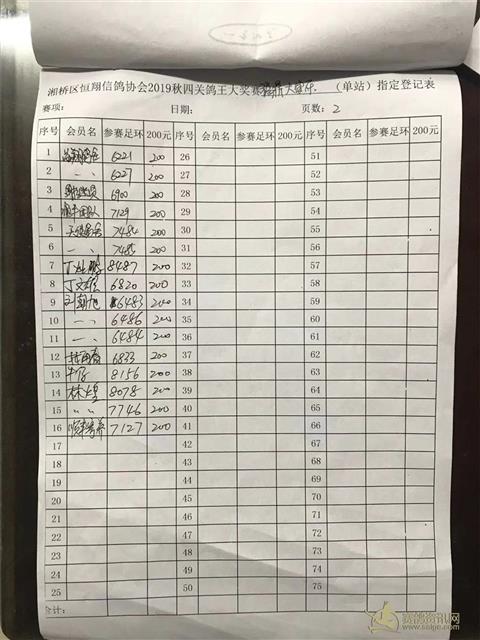 湘桥区恒翔信鸽协会2019秋四关鸽王大奖赛 （单站）指定登记表
赛项： 日期： 页数：2
序号 会员名 参赛足环 200元 序号 会员名 参赛足环 200元 序号 会员名 参赛足环 200元
1 6221 200 26 51
2 〃 6227 200 27 52
3 6900 200 28 53
4 7129 200 29 54
5 7484 200 30 55
6 〃 7485 200 31 56
7 8487 200 32 57
8 丁文 6820 200 33 58
9 6483 200 34 59
10 〃 6486 200 35 60
11 〃 6484 200 36 61
12 6833 200 37 62
13 牛仔 8156 200 38 63
14 林煌 8078 200 39 64
15 〃 7746 200 40 65
16 7127 200 41 66
17 42 67
18 43 68
19 44 69
20 45 70
21 46 71
22 47 72
23 48 73
24 49 74
25 50 75
合计：
赛鸽资讯网
www.saige.com